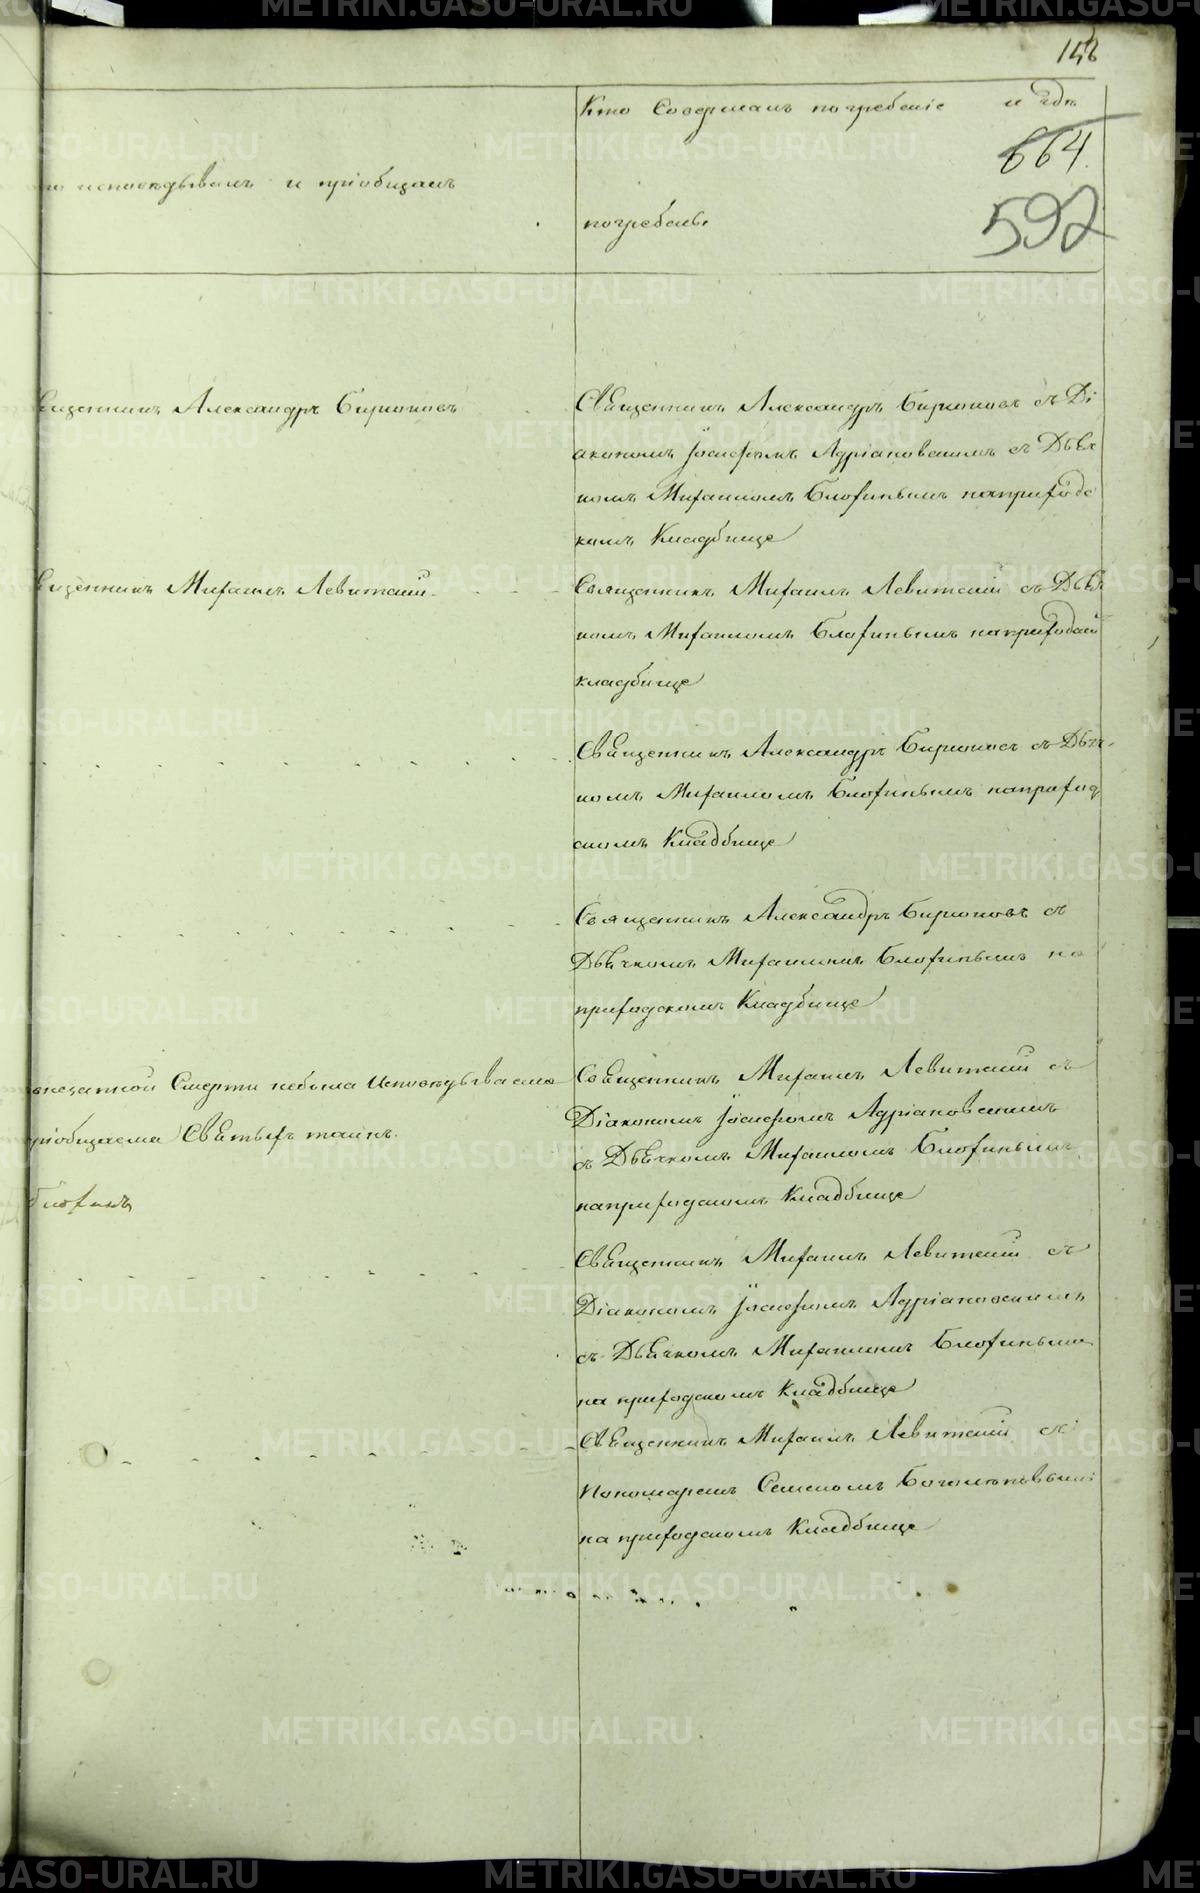 148
Кто Совершалъ погребеніе и гдѣ
664.
592
исповѣдывалъ и пріобщалъ
погребены
Священникъ Александръ Бирюковъ
Священникъ Александръ Бирюковъ съ Ді
акономъ Іосифомъ Адріановскимъ съ Дьяч
комъ Михаиломъ Блохинымъ на приходс
комъ Кладбище
Священникъ Михаилъ Левитскій
Священникъ Михаилъ Левитскій съ Дьяч
комъ Михаиломъ Блохинымъ на приходской
кладбище
Священникъ Александръ Бирюковъ съ Дьяч
комъ Михаиломъ Блохинымъ на приход
скомъ Кладбище
Священникъ Александръ Бирюковъ съ
Дьячкомъ Михаиломъ Блохинымъ на
приходскомъ Кладбище
внезапной Смерти небыла Исповѣдываема
пріобщаема Святыхъ таинъ.
Блохинъ
Священникъ Михаилъ Левитскій съ
Діакономъ Іосифомъ Адріановскимъ
съ Дьячкомъ Михаиломъ Блохинымъ
на приходскомъ Кладбище
Священникъ Михаилъ Левитскій съ
Діакономъ Іосифомъ Адріановскимъ
съ Дьячкомъ Михаиломъ Блохинымъ
на приходскомъ Кладбище
Священникъ Михаилъ Левитскій съ
Пономаремъ Семеномъ Боголюбовымъ
на приходскомъ Кладбище
METRIKI.GASO-URAL.RU